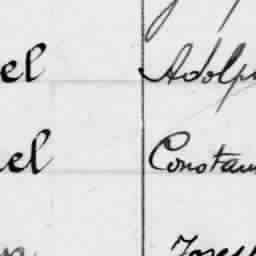 el Adolp
el Constan
Josep